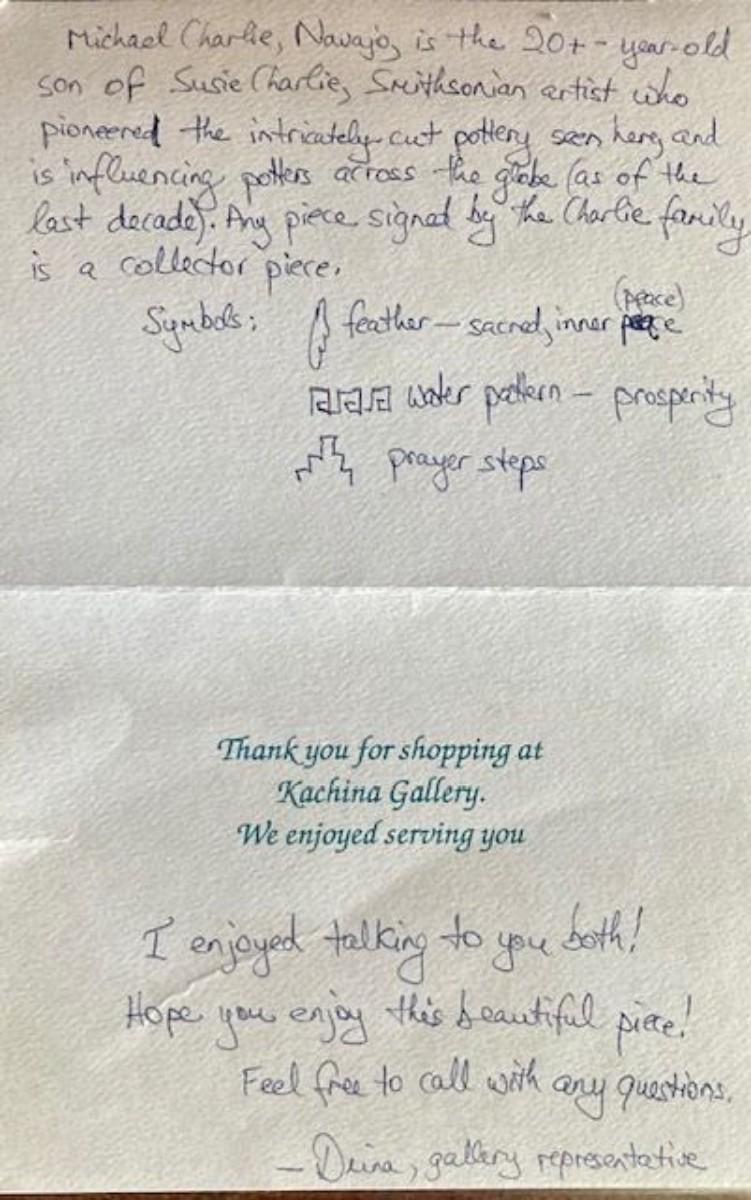 Michael Charlie, Navajo, is the 20+-year-old
son of Susie Charlie, Smithsonian artist who
pioneered the intricately-cut pottery seen here, and
is influencing potters across the globe (as of the
last decade). Any piece signed by the Charlie family
is a collector piece.
(peace)
Symbols: feather — sacred, inner peace
water pattern — prosperity
prayer steps
Thank you for shopping at
Kachina Gallery.
We enjoyed serving you
I enjoyed talking to you both!
Hope you enjoy this beautiful piece!
Feel free to call with any questions.
— Deina, gallery representative